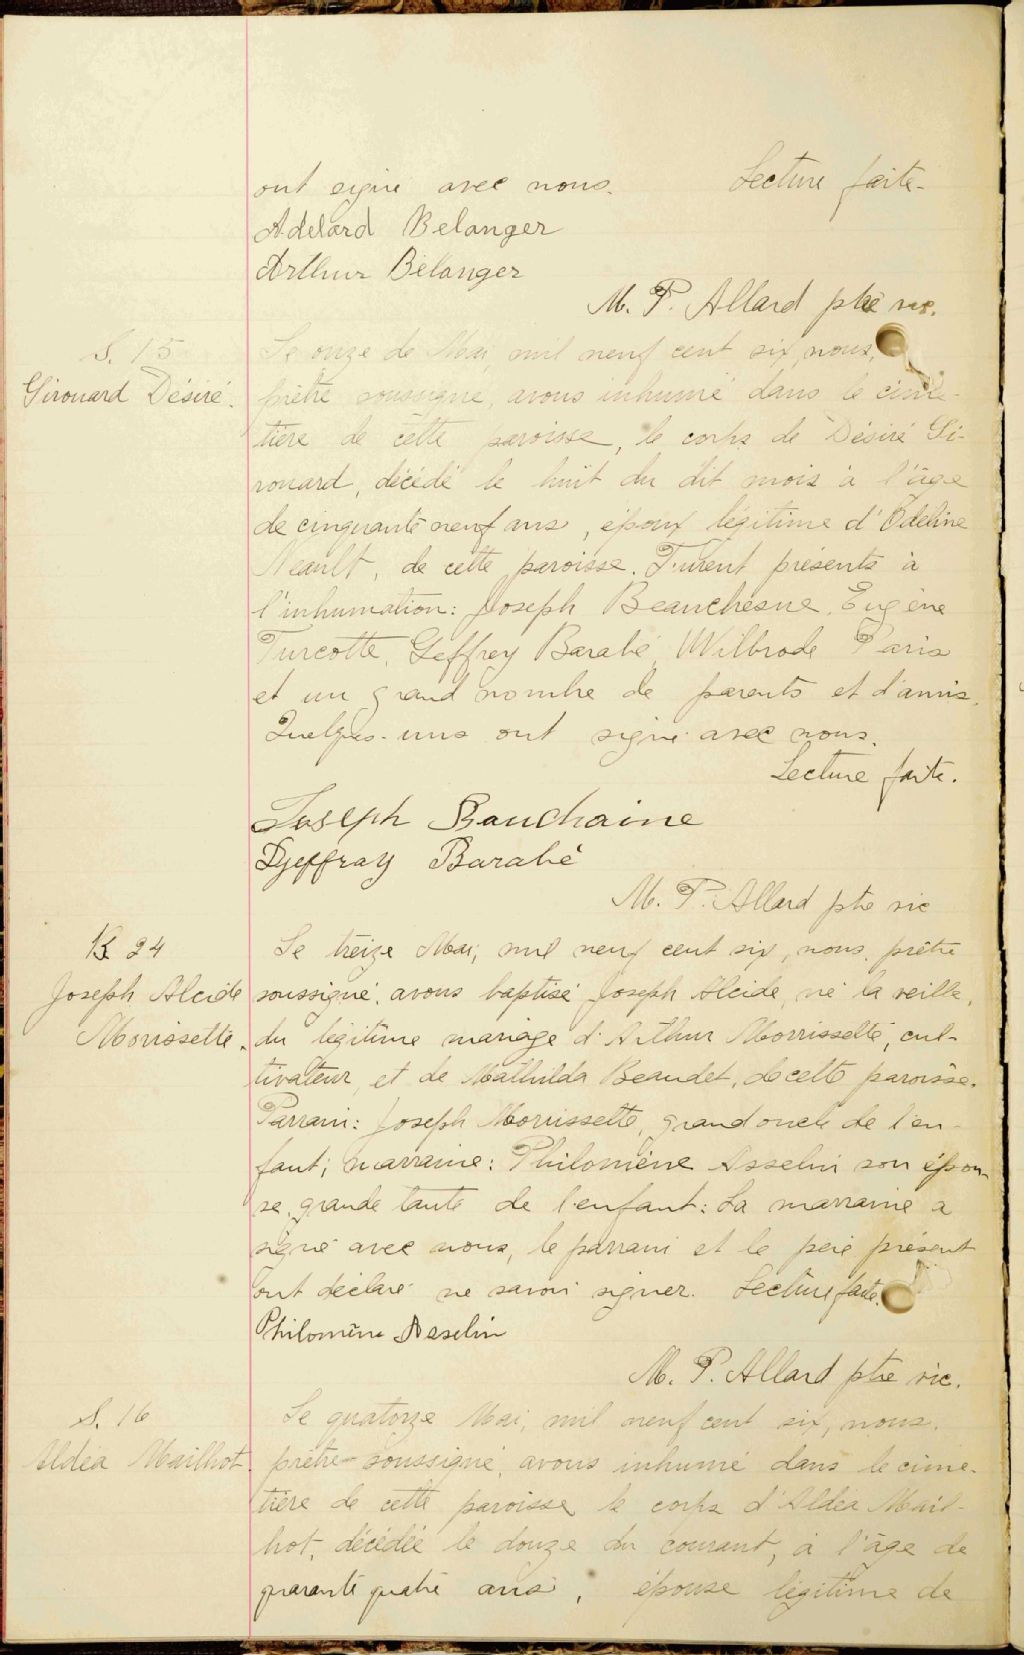 ont signé avec nous. Lecture faite.
Adelard Belanger
Arthur Bélanger
M. P. Allard ptre vic.
S. 15
Girouard Désiré.
Le onze de Mai, mil neuf cent six, nous,
prêtre soussigné, avons inhumé dans le cime-
tière de cette paroisse, le corps de Désiré Gi-
rouard, décédé le huit du dit mois à l'âge
de cinquante neuf ans, époux légitime d'Odeline
Neault, de cette paroisse. Furent présents à
l'inhumation: Joseph Beauchesne, Eugène
Turcotte, Geffrey Barabé, Wilbrode Paris
et un grand nombre de parents et d'amis.
Quelques-uns ont signé avec nous.
Lecture faite.
Joseph Bauchaine
Djeffray Barabé
M. P. Allard ptre vic
B 24
Joseph Alcide
Morissette.
Le treize Mai, mil neuf cent six, nous, prêtre
soussigné, avons baptisé Joseph Alcide, né la veille,
du légitime mariage d'Arthur Morrissette, cul-
tivateur, et de Mathilda Beaudet, de cette paroisse.
Parrain: Joseph Morrissette, grand oncle de l'en-
fant; marraine: Philomène Asselin son épou-
se, grande tante de l'enfant: La marraine a
signé avec nous, le parrain et le père présent
ont déclaré ne savoir signer. Lecture faite.
Philomène Asselin
M. P. Allard ptre vic.
S. 16
Aldéa Mailhot.
Le quatorze Mai, mil neuf cent six, nous,
prêtre-soussigné, avons inhumé dans le cime-
tière de cette paroisse le corps d'Aldea Mail-
hot, décédée le douze du courant, à l'âge de
quarante quatre ans, épouse légitime de